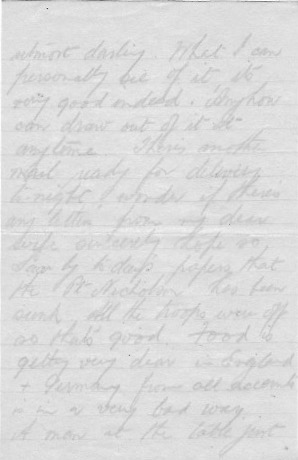 utmost darling. What I can
personally see of it its
very good indeed. Anyhow
can draw out of it at
anytime. There's another
mail ready for delivery
to-night I wonder if there's
any letter from my dear
wife sincerely hope so.
Saw by to day's papers that
the Pt Nicholson has been
sunk all the troops were off
so that's good. Food is
getting very dear in England
+ Germany from all accounts
is in a very bad way.
A man at the table just